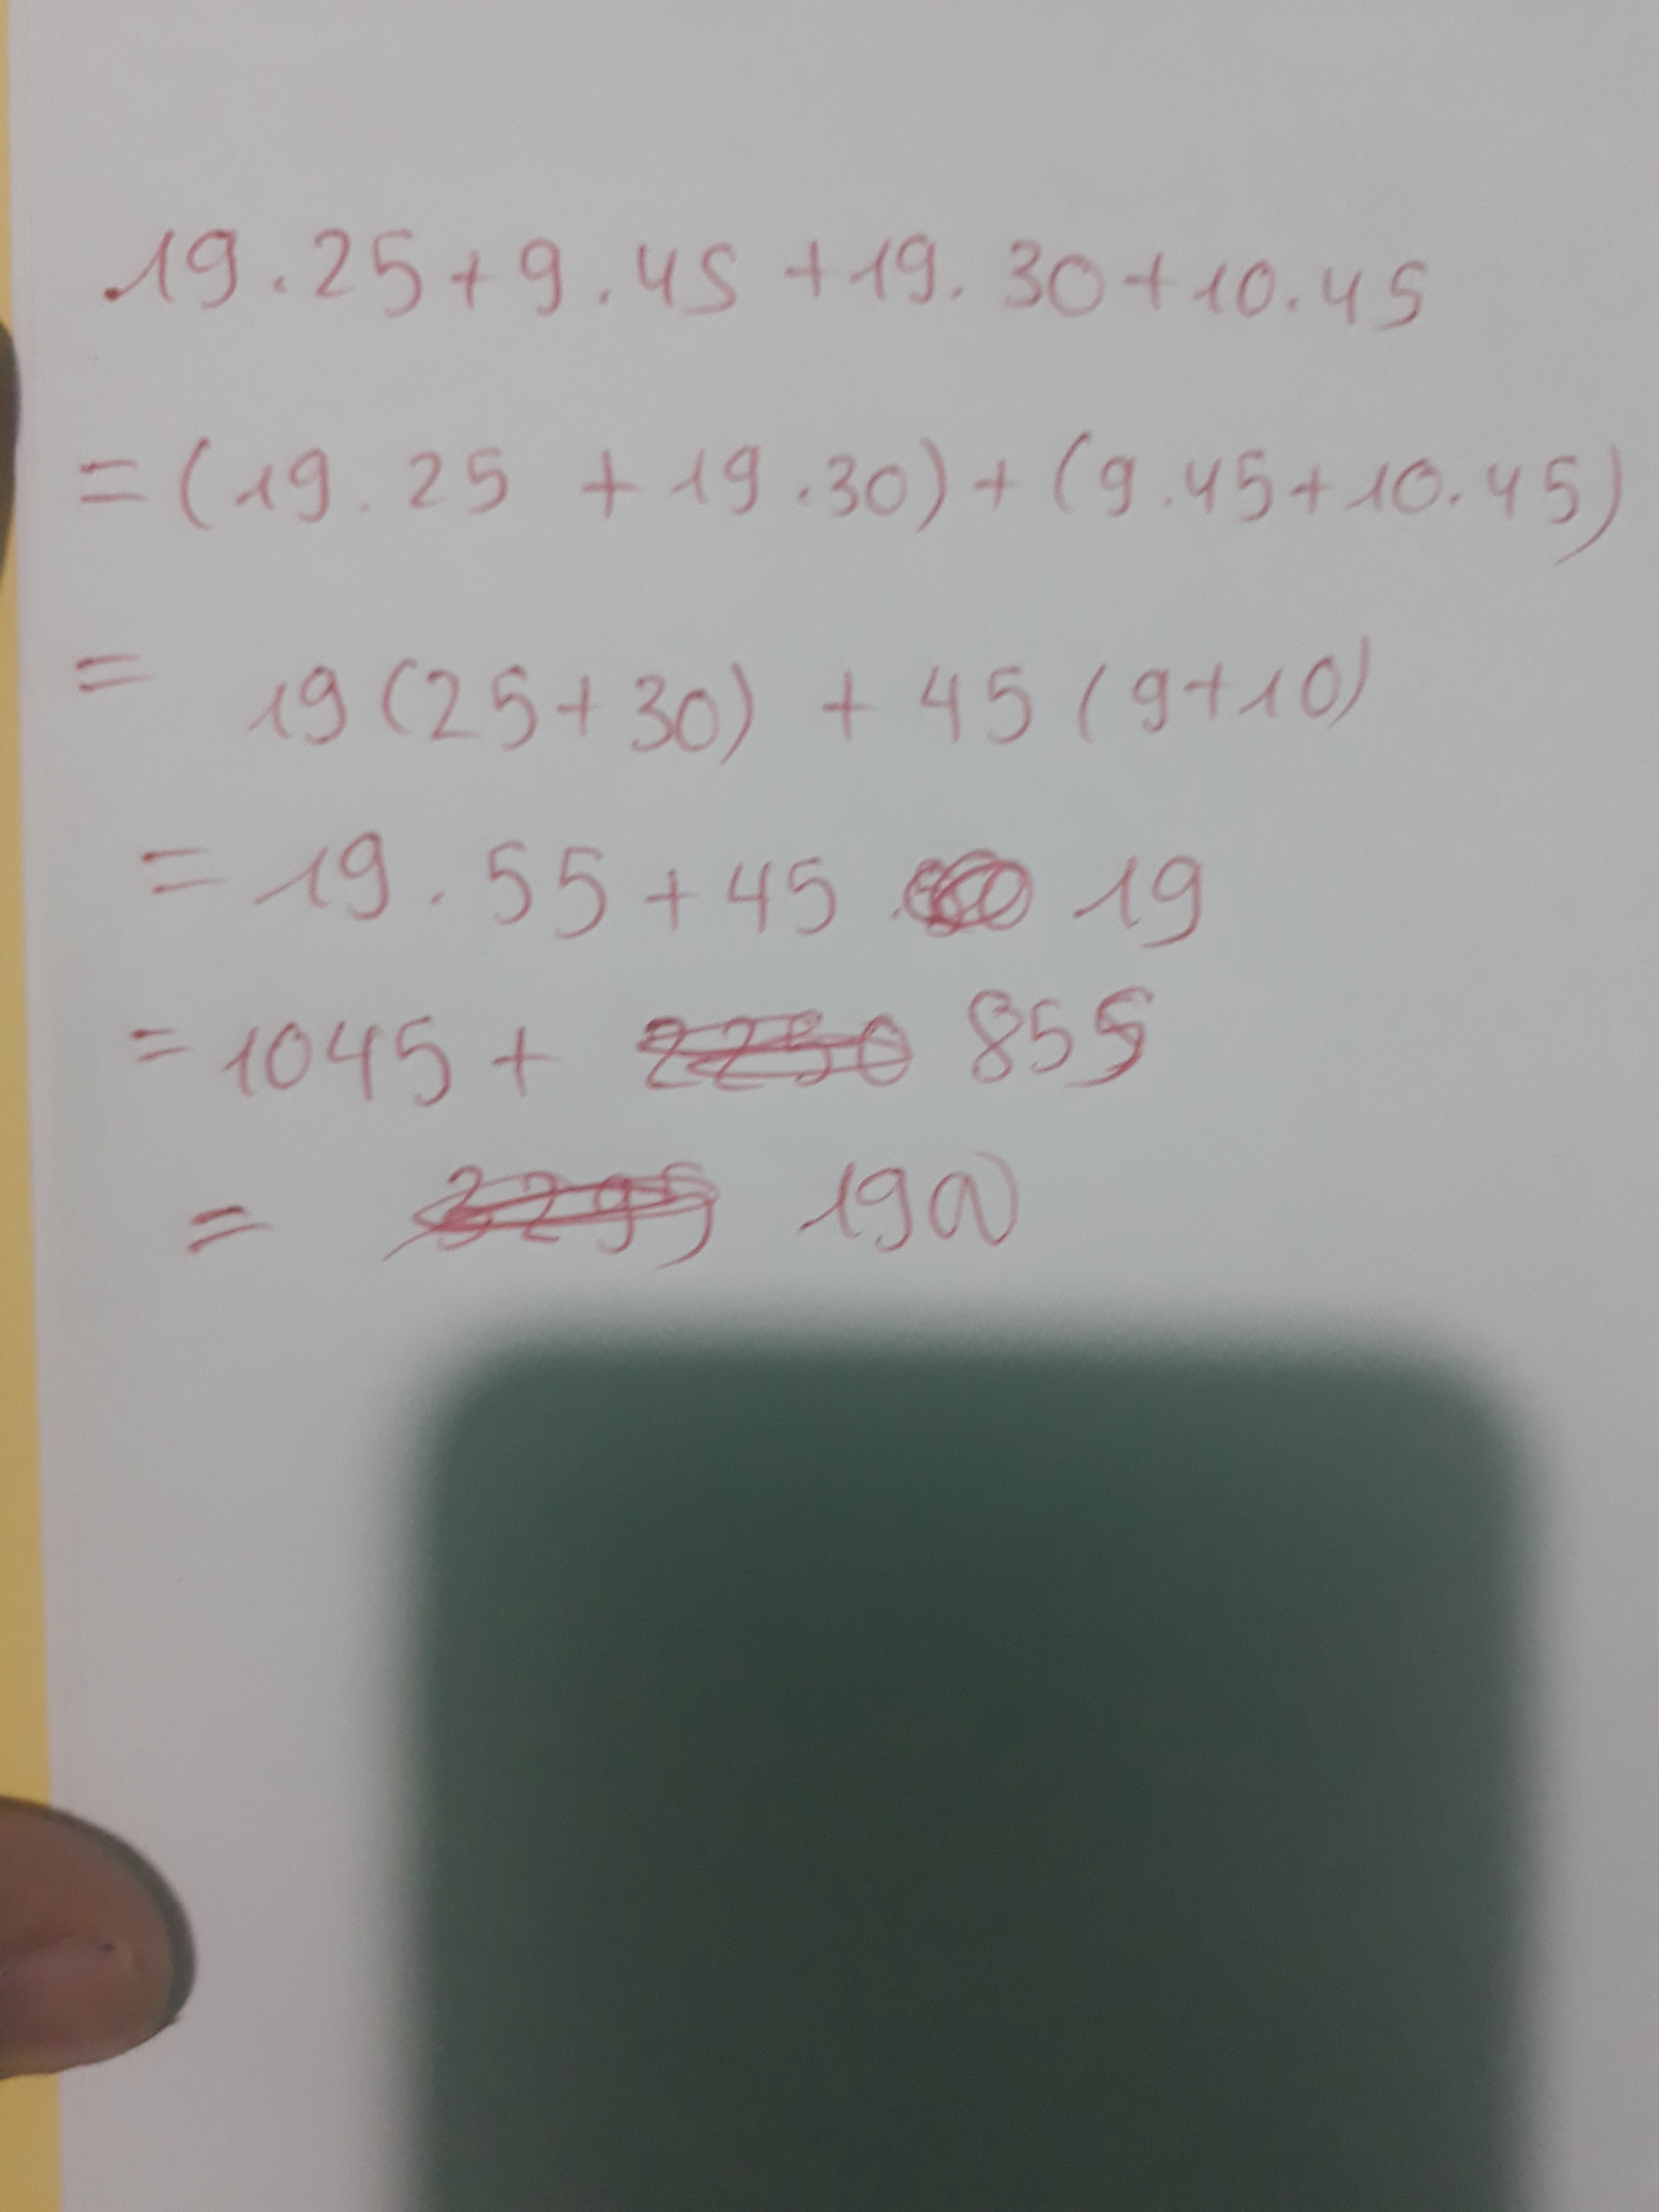 19.25+9.45+19.30+10.45
=(19.25 +19.30)+(9.45+10.45)
= 19(25+30) + 45(9+10)
=19.55+45 19
=1045+ 2250 855
= 3295 1900